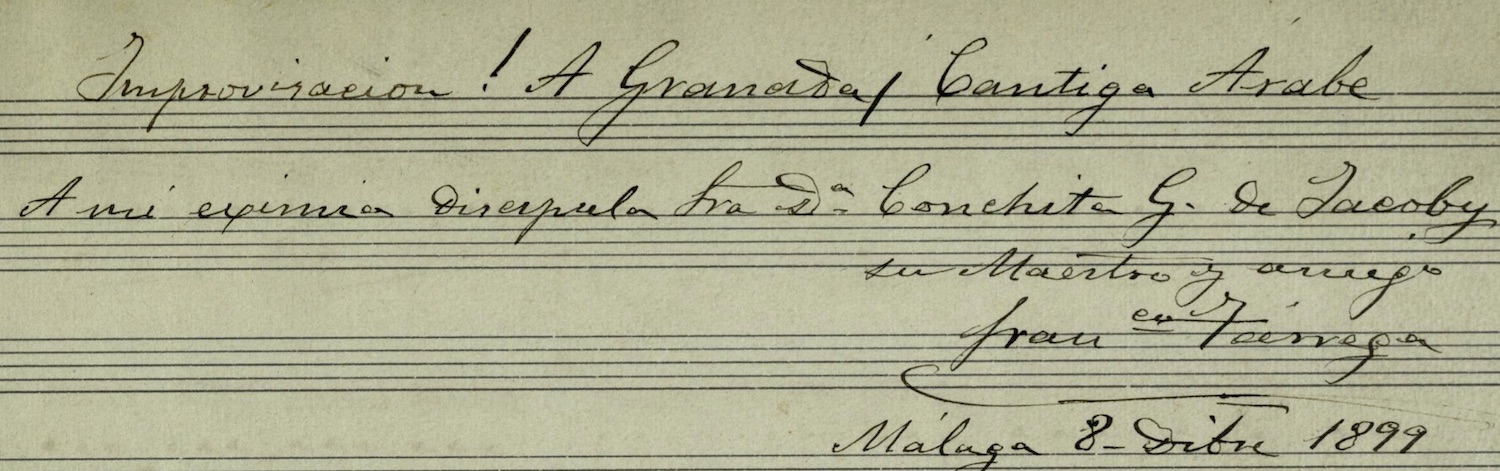 Improvisacion ! A Granada! Cantiga Árabe
A mi eximia discipula Sra Dª Conchita G. de Jacoby
su Maestro y amigo
Franco Tárrega
Málaga 8-Dibre 1899